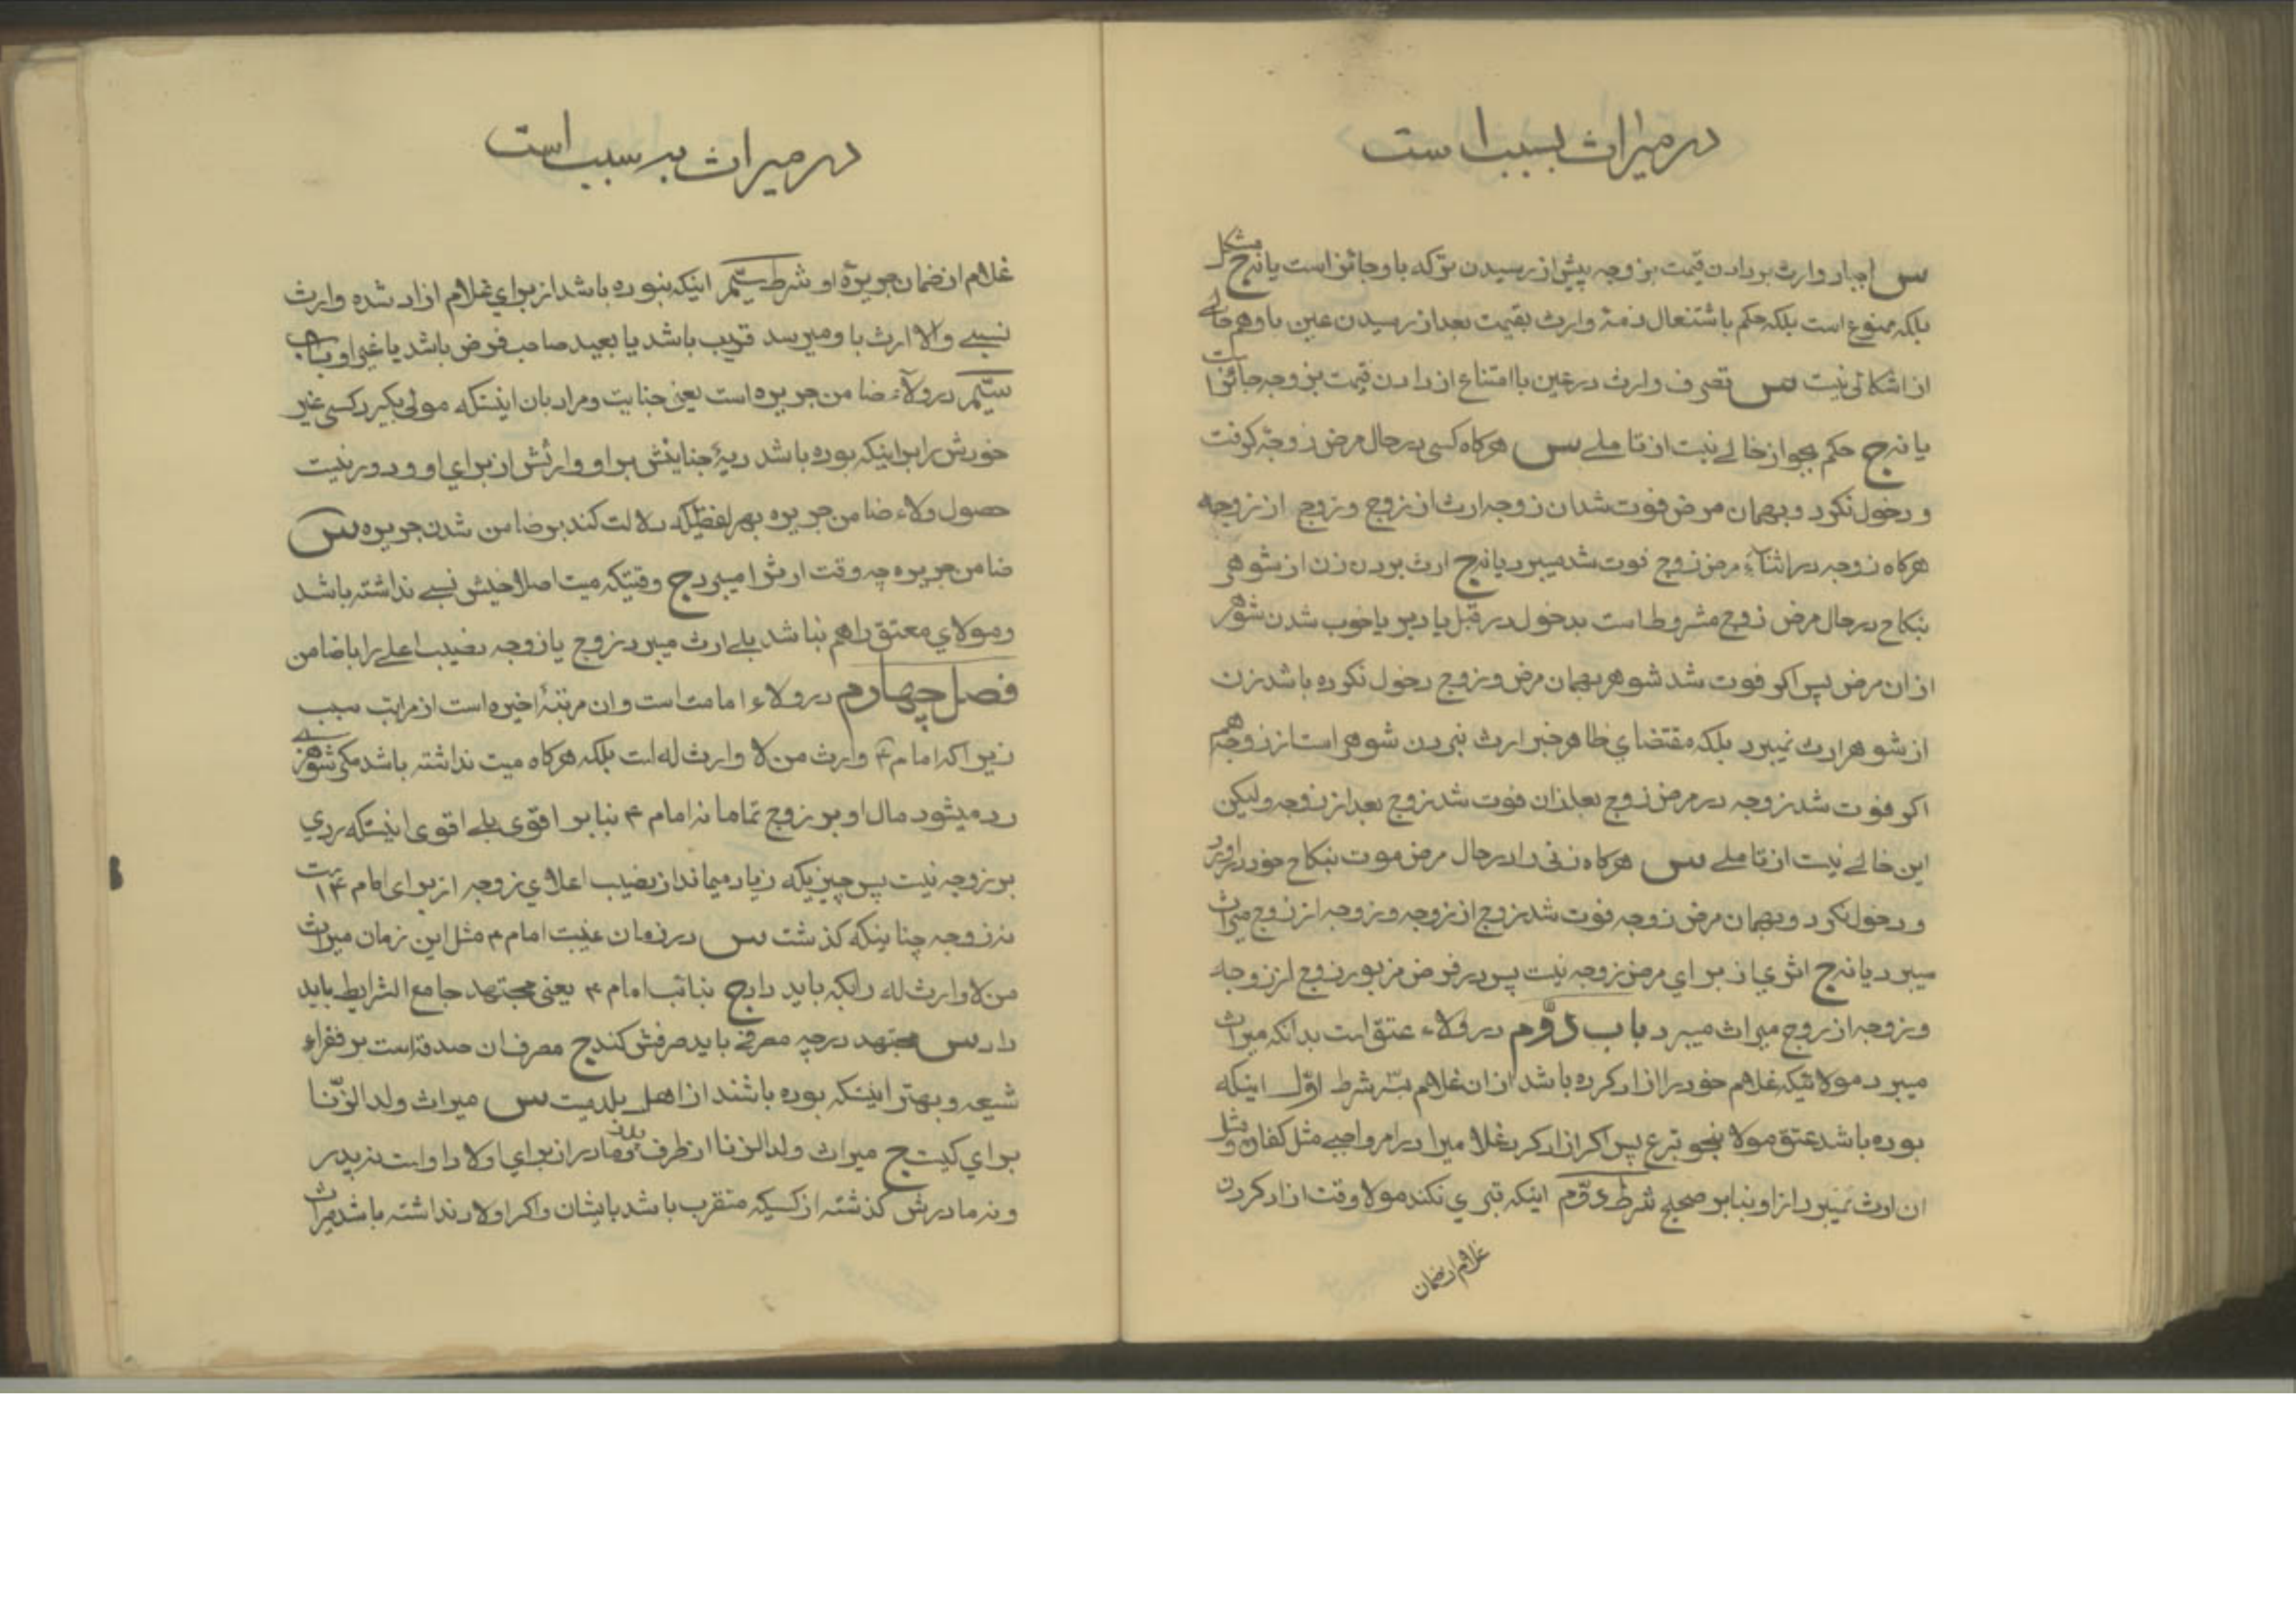 در میراث بسبب است
س اجبار وارث بر دادن قیمت بزوجه پیش از رسیدن ترکه باو جائز است یا نه ج مشکل
بلکه ممنوع است بلکه حکم باشتغال ذمهٔ وارث بقیمت بعد از رسیدن عین باو هم خالی
از اشکالی نیست س تصرف وارث در عین با امتناع از دادن قیمت بزوجه جائز است
یا نه ج حکم بجواز خالے نیست از تاملے س هرکاه کسی در حال مرض زوجهٔ کرفت
و دخول نکرد و بهمان مرض فوت شد ان زوجه ارث از زوج و زوج از زوجه
هرکاه زوجه در اثناء مرض زوج فوت شد میبرد یا نه ج ارث بردن زن از شوهر
بنکاح در حال مرض زوج مشروط است بدخول در قبل یا دبر یا خوب شدن شوهر
از ان مرض پس اکر فوت شد شوهر بهمان مرض و زوج دخول نکرده باشد زن
از شوهر ارث نمیبرد بلکه مقتضای ظاهر خبر ارث نبردن شوهر است از زوجه هم
اکر فوت شد زوجه در مرض زوج بعد از ان فوت شد زوج بعد از زوجه ولیکن
این خالے نیست از تاملے س هرکاه زنی را در حال مرض موت بنکاح خود دراورد
و دخول نکرد و بهمان مرض زوجه فوت شد زوج از زوجه و زوجه از زوج میراث
میبرد یا نه ج اثری از برای مرض زوجه نیست پس در فرض مزبور زوج از زوجه
و زوجه از زوج میراث میبرد باب دوّم در ولاء عتق است بدانکه میراث
میبرد مولائیکه غلام خود را ازاد کرده باشد از ان غلام بسه شرط اوّل اینکه
بوده باشد عتق مولا بنحو تبرع پس اکر ازاد کرد غلامیرا در امر واجبے مثل کفاره و مثل
ان ارث نمیبرد از او بنابر صحیح شرط دوّم اینکه تبری نکند مولا وقت ازاد کردن
غلام از ضمان
در میراث به سبب است
غلام از ضمان جریرهٔ او شرط سیّم اینکه نبوده باشد از برای غلام ازاد شده وارث
نسبے والا ارث باو میرسد قریب باشد یا بعید صاحب فرض باشد یا غیر او باب
سیّم در ولاء ضامن جریره است یعنی جنایت و مراد بان اینستکه مولی بکیرد کسی غیر
خودش را بر اینکه بوده باشد دیهٔ جنایتش بر او و ارثش از برای او و دور نیست
حصول ولاء ضامن جریره بهر لفظیکه دلالت کند بر ضامن شدن جریره س
ضامن جریره چه وقت ارث را میبرد ج وقتیکه میت اصلا خویش نسبے نداشته باشد
و مولای معتق را هم نباشد بلے ارث میبرد زوج یا زوجه نصیب اعلے را با ضامن
فصل چهارم در ولاء امامت است و ان مرتبهٔ اخیره است از مراتب سبب
زیرا که امام ع وارث من لا وارث له است بلکه هرکاه میت نداشته باشد مکر شوهر
رد میشود مال او بر زوج تماما نه امام ع بنابر اقوی بلے اقوی اینستکه ردی
بر زوجه نیست پس چیزیکه زیاد میماند از نصیب اعلای زوجه از برای امام ع است
نه زوجه چنانکه کذشت س در زمان غیبت امام ع مثل این زمان میراث
من لا وارث له را بکه باید داد ج بنائب امام ع یعنی مجتهد جامع الشرایط باید
داد س مجتهد در چه مصرفے باید صرفش کند ج مصرف ان صدقه است بر فقراء
شیعه و بهتر اینکه بوده باشند از اهل بلد میت س میراث ولد الزّنا
برای کیست ج میراث ولد الزنا از طرف پدر و مادر از برای اولاد او است نه پدر
و نه مادرش کذشته از کسیکه متقرب باشد بایشان و اکر اولاد نداشته باشد میراث